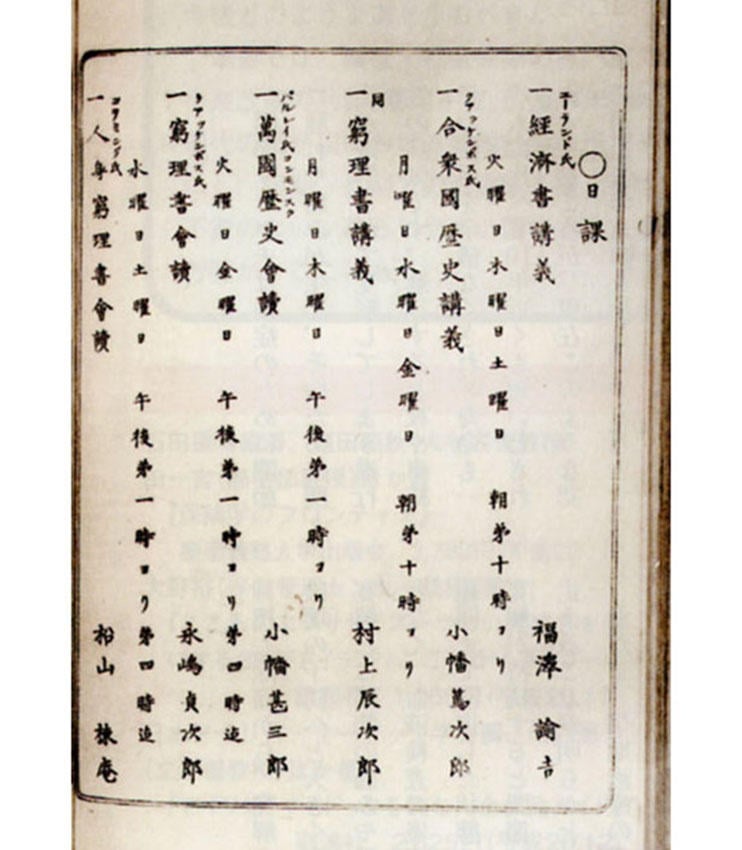 〇日課
エーランド氏
一經濟書講義 福澤諭吉
火曜日木曜日土曜日 朝第十時ヨリ
クアッケンボス氏
一合衆國歴史講義 小幡篤次郎
月曜日水曜日金曜日 朝第十時ヨリ
同
一窮理書講義 村上辰次郎
月曜日木曜日 午後第一時ヨリ
パルレイ氏コンモンスクール
一萬國歴史會讀 小幡甚三郎
火曜日金曜日 午後第一時ヨリ第四時迄
クアッケンボス氏
一窮理書會讀 永嶋貞次郎
水曜日土曜日 午後第一時ヨリ第四時迄
コヲミング氏
一人身窮理書會讀 松山棟庵